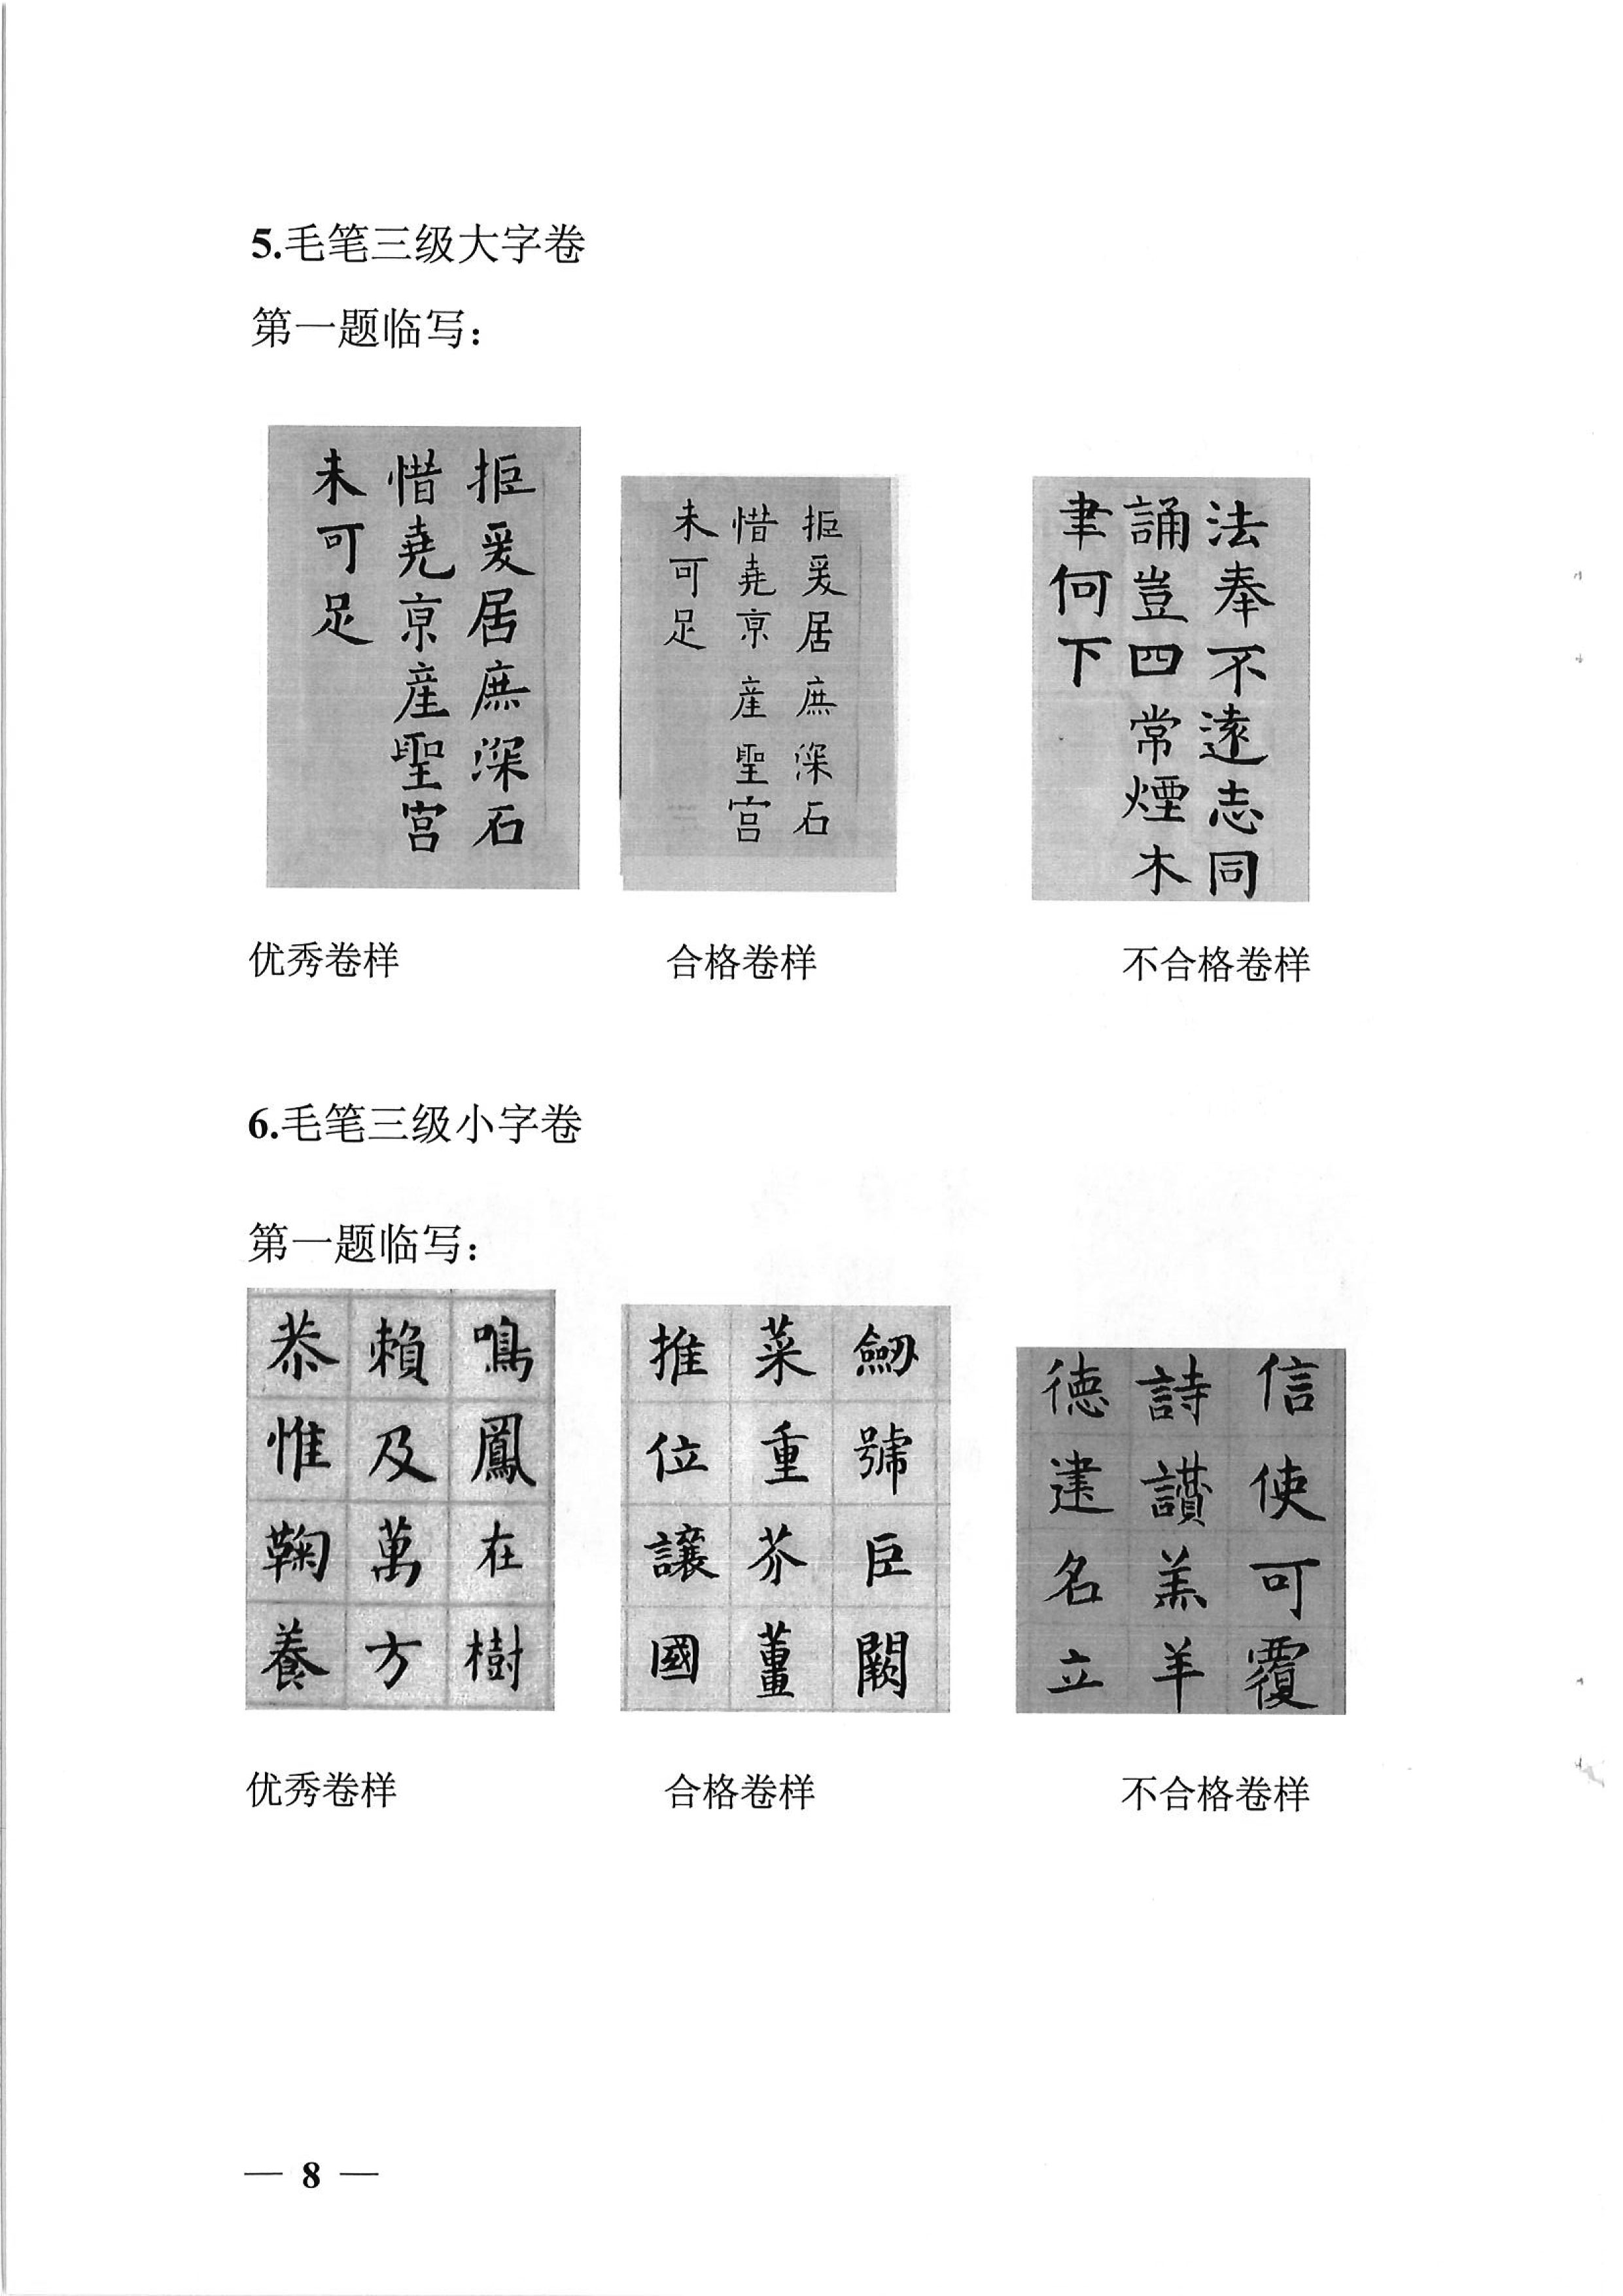 5.毛笔三级大字卷
第一题临写：
拒爰居庶深石
惜堯京産聖宫
未可足
拒爰居庶深石
惜堯京産聖宫
未可足
法奉不遠志同
誦豈四常煙木
聿何下
优秀卷样
合格卷样
不合格卷样
6.毛笔三级小字卷
第一题临写：
鳴鳳在樹
賴及萬方
恭惟鞠養
劒號巨闕
菜重芥薑
推位讓國
信使可覆
詩讚羔羊
德建名立
优秀卷样
合格卷样
不合格卷样
— 8 —